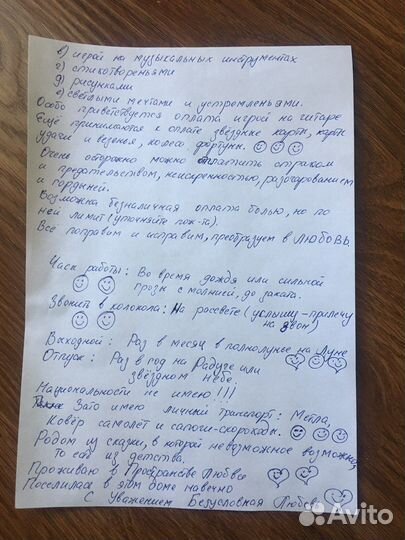 в) игрой на музыкальных инструментах
г) стихотвореньями
д) рисунками
е) светлыми мечтами и устремленьями.
Особо приветствуется оплата игрой на гитаре
Ещё принимаются к оплате звёздные карты, карты
удачи и везенья, колесо фортуны.
Очень осторожно можно оплатить страхом
и предательством, неискренностью, разочарованием
и гордыней.
Возможна безналичная оплата болью, но по
ней лимит (уточняйте пож-та).
Всё поправим и исправим, преобразуем в ЛЮБОВЬ
Часы работы: Во время дождя или сильной
грозы с молнией, до заката.
Звонить в колокола: На рассвете (услышу - прилечу
на звон)
Выходной: Раз в месяц в полнолунье на Луне
Отпуск: Раз в год на Радуге или
звёздном небе.
Национальности не имею!!!
Зато имею личный транспорт: Метла,
Ковёр самолет и сапоги-скороходы.
Родом из сказки, в которой невозможное возможно,
то есть из детства.
Проживаю в Пространстве Любви
Поселилась в этом доме навечно
С Уважением Безусловная Любовь
Avito